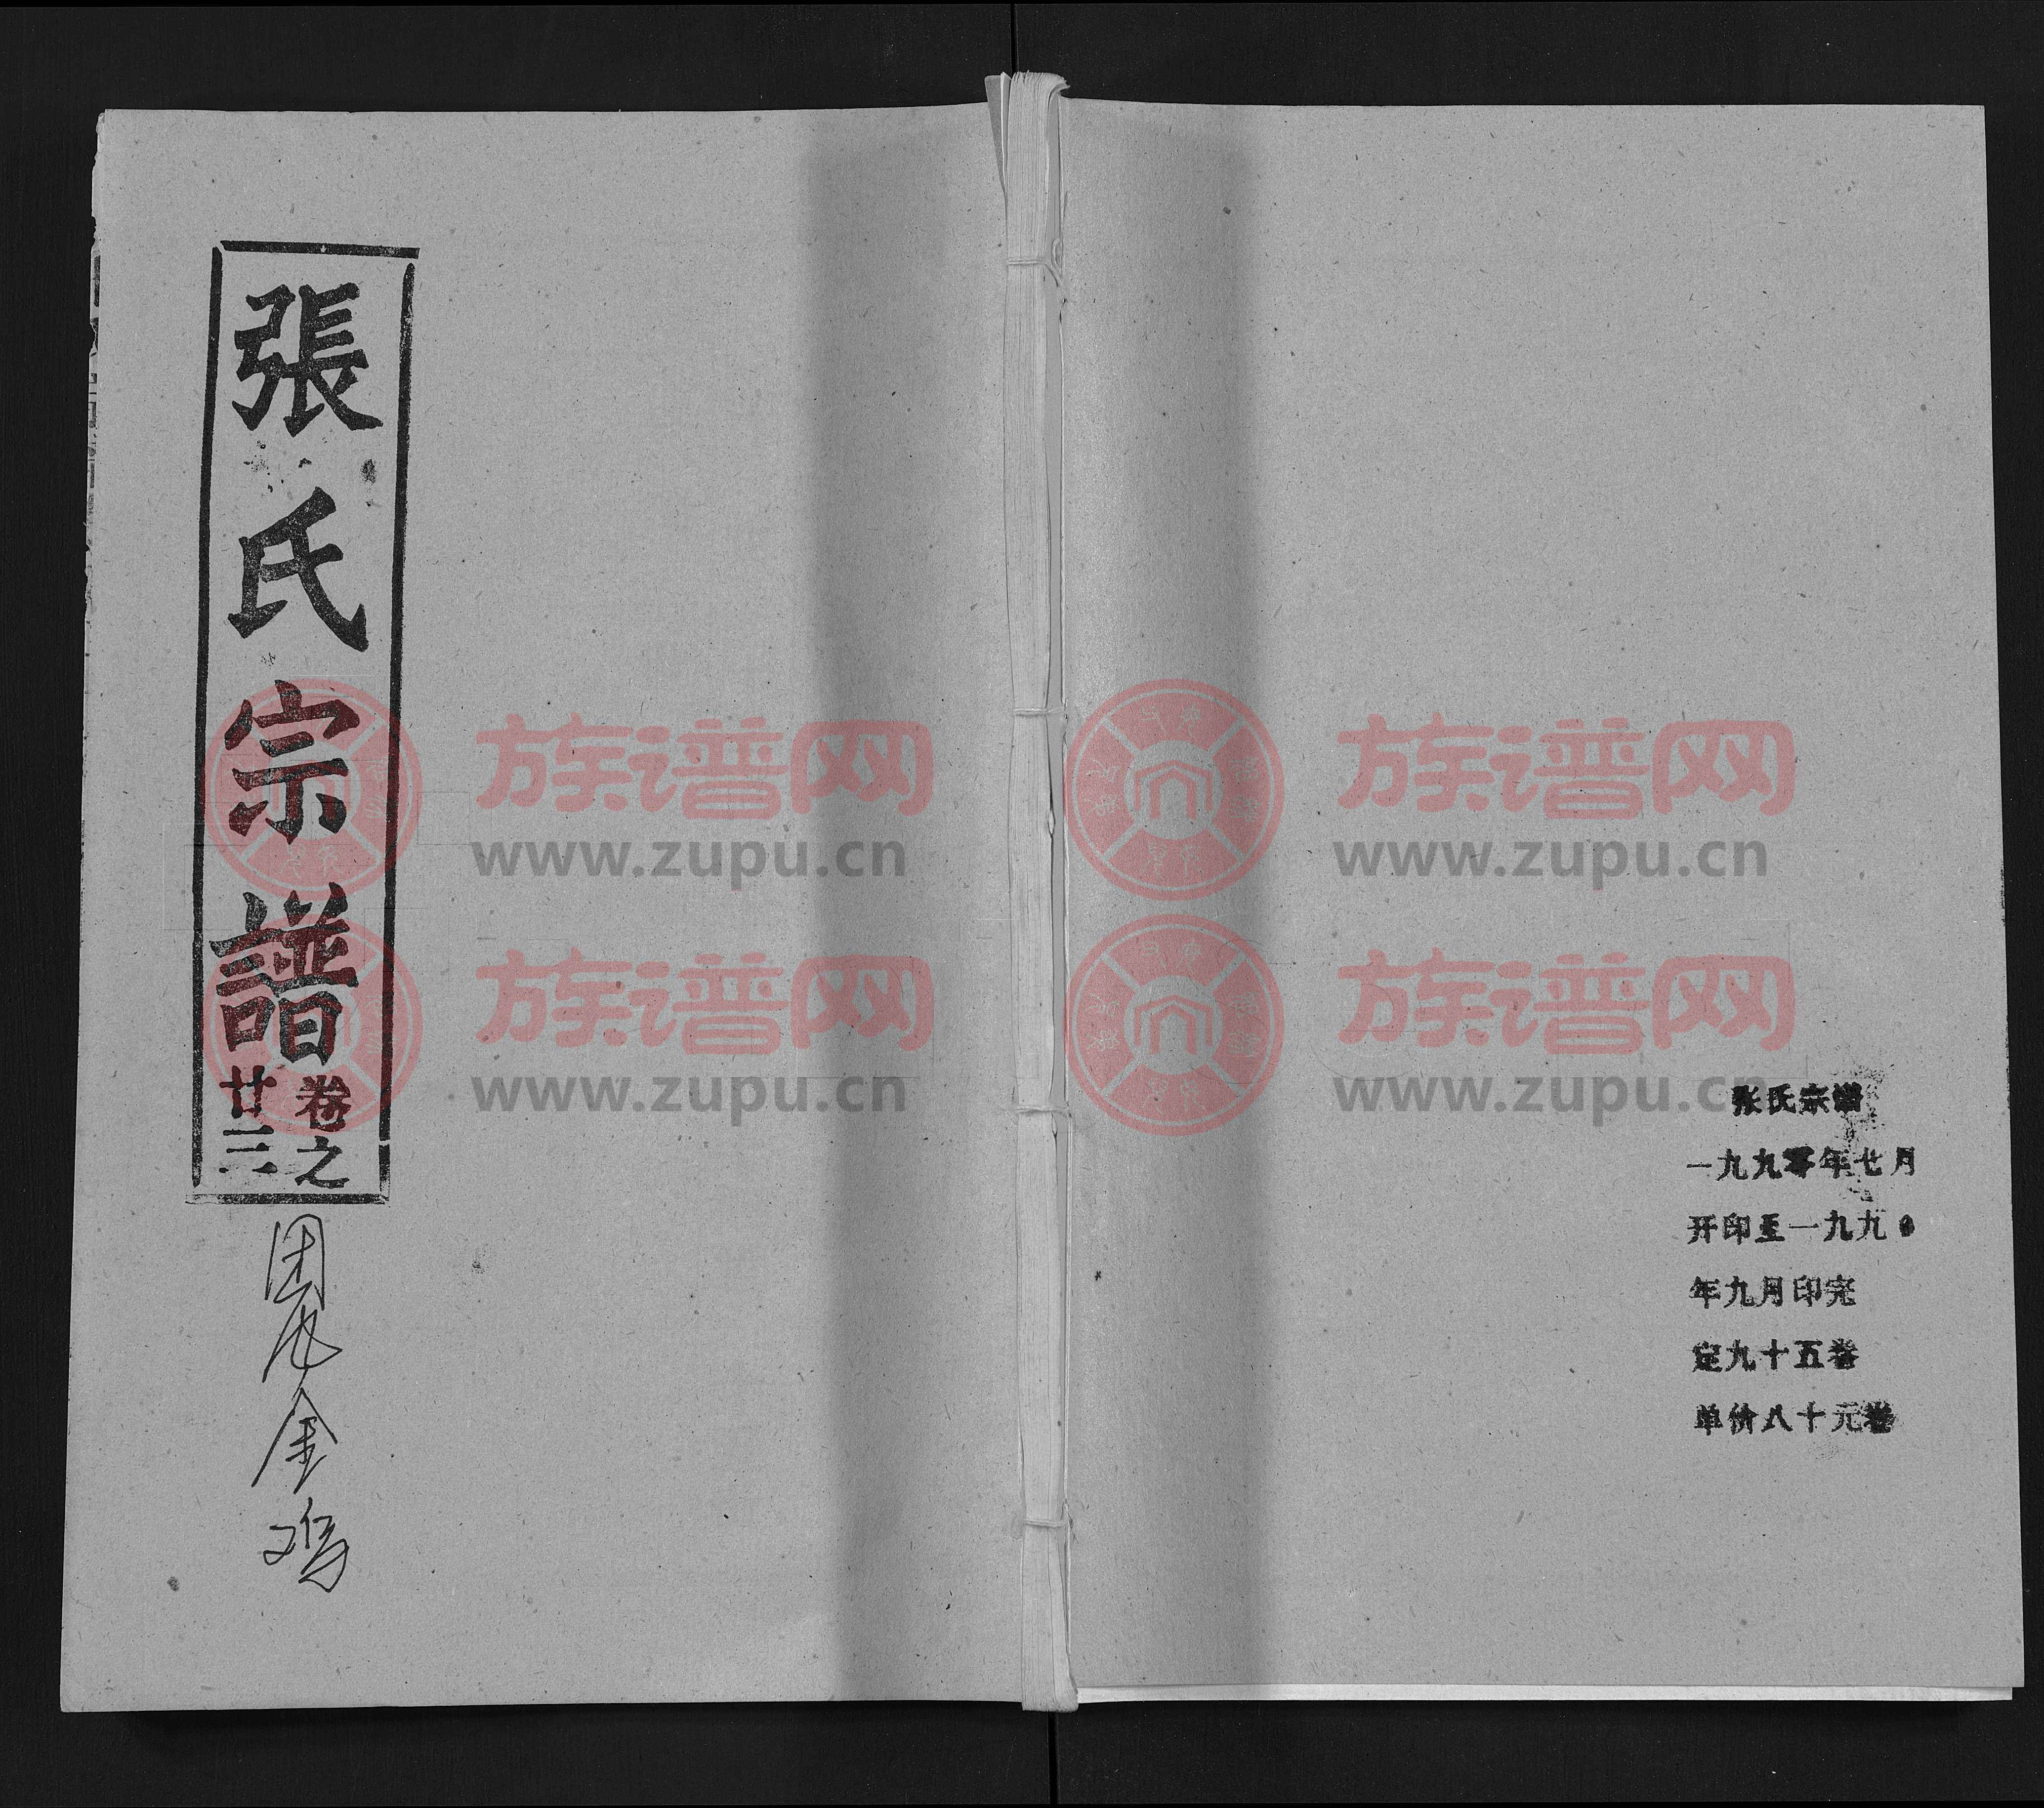 張氏宗譜
卷之
廿三
金鸡
张氏宗谱
一九九零年七月
开印至一九九
年九月印完
定九十五卷
单价八十元卷
族谱网
www.zupu.cn
族谱网
www.zupu.cn
族谱网
www.zupu.cn
族谱网
www.zupu.cn